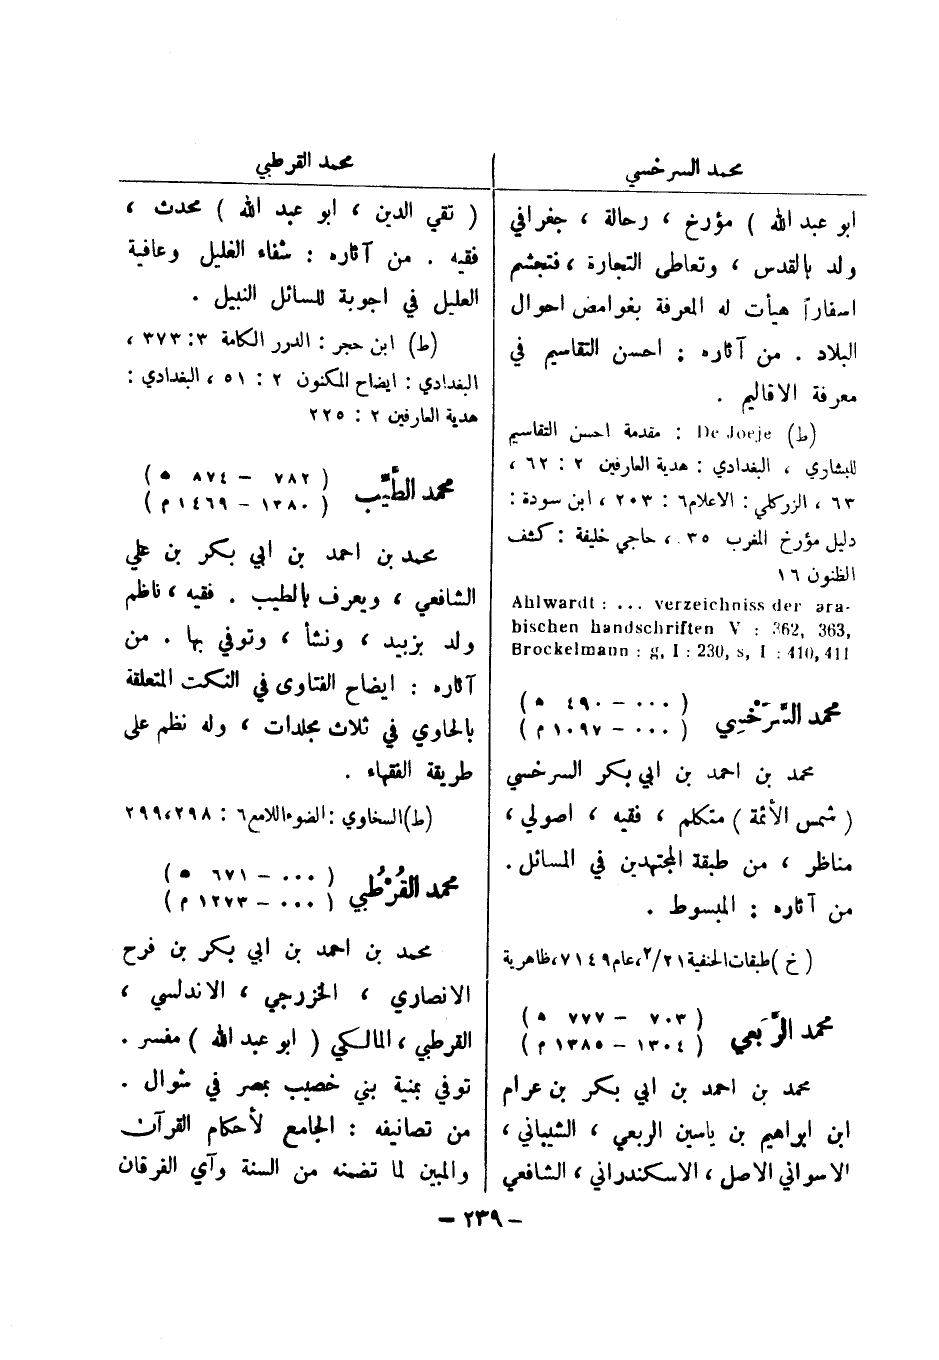 محمد السرخسي
ابو عبد الله ) مؤرخ ، رحالة ، جغرافي
ولد بالقدس ، وتعاطى التجارة ، فتجشم
اسفاراً هيأت له المعرفة بغوامض احوال
البلاد . من آثاره : احسن التقاسيم في
معرفة الاقاليم .
(ط) De Joeje : مقدمة احسن التقاسيم
للبشاري ، البغدادي : هدية العارفين ٢ : ٦٢ ،
٦٣ ، الزركلي : الاعلام ٦ : ٢٠٣ ، ابن سودة :
دليل مؤرخ المغرب ٣٥ ، حاجي خليفة : كشف
الظنون ١٦
Ahlwardt : ... verzeichniss der ara-
bischen handschriften V : 362, 363,
Brockelmann : g, I : 230, s, I : 410, 411
محمد السَّرَخْسِي
( ... – ٤٩٠ ه )
( ... – ١٠٩٧ م )
محمد بن احمد بن ابي بكر السرخسي
( شمس الأئمة ) متكلم ، فقيه ، اصولي ،
مناظر ، من طبقة المجتهدين في المسائل .
من آثاره : المبسوط .
( خ ) طبقات الحنفية ٢/٢١ ، عام ٧١٤٩ ، ظاهرية
محمد الرَّبَعي
( ٧٠٣ – ٧٧٧ ه )
( ١٣٠٤ – ١٣٨٥ م )
محمد بن احمد بن ابي بكر بن عرام
ابن ابراهيم بن ياسين الربعي ، الشيباني ،
الاسواني الاصل ، الاسكندراني ، الشافعي
محمد القرطبي
( تقي الدين ، ابو عبد الله ) محدث ،
فقيه . من آثاره : شفاء الغليل وعافية
العليل في اجوبة للسائل النبيل .
(ط) ابن حجر : الدرر الكامة ٣ : ٣٧٣ ،
البغدادي : ايضاح المكنون ٢ : ٥١ ، البغدادي :
هدية العارفين ٢ : ٢٢٥
محمد الطَّيِّب
( ٧٨٢ – ٨٧٤ ه )
( ١٣٨٠ – ١٤٦٩ م )
محمد بن احمد بن ابي بكر بن علي
الشافعي ، ويعرف بالطيب . فقيه ، ناظم
ولد بزبيد ، ونشأ ، وتوفي بها . من
آثاره : ايضاح الفتاوى في النكت المتعلقة
بالحاوي في ثلاث مجلدات ، وله نظم على
طريقة الفقهاء .
(ط) السخاوي : الضوء اللامع ٦ : ٢٩٨ ، ٢٩٩
محمد القُرْطُبي
( ... – ٦٧١ ه )
( ... – ١٢٧٣ م )
محمد بن احمد بن ابي بكر بن فرح
الانصاري ، الخزرجي ، الاندلسي ،
القرطبي ، المالكي ( ابو عبد الله ) مفسر .
توفي بمنية بني خصيب بمصر في شوال .
من تصانيفه : الجامع لأحكام القرآن
والمبين لما تضمنه من السنة وآي الفرقان
– ٢٣٩ –